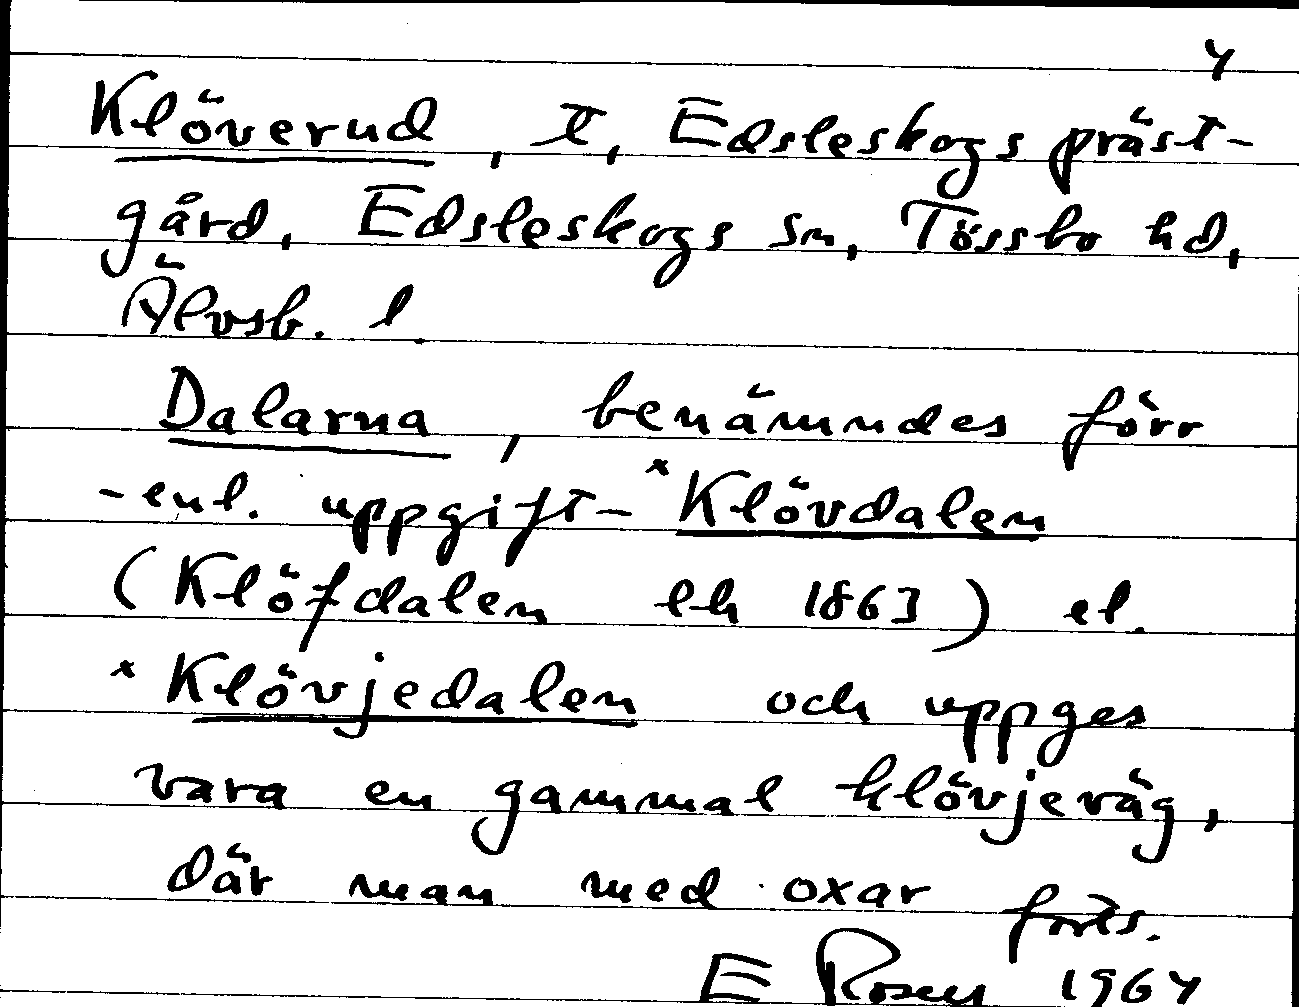 4
Klöverud, t, Edsleskogs präst-
gård, Edsleskogs sn, Tössbo hd,
Älvsb. l.
Dalarna, benämndes förr
- enl. uppgift - *Klövdalen
(Klöfdalen lh 1863) el.
*Klövjedalen och uppges
vara en gammal klövjeväg,
där man med oxar forts.
E Rosen 1964